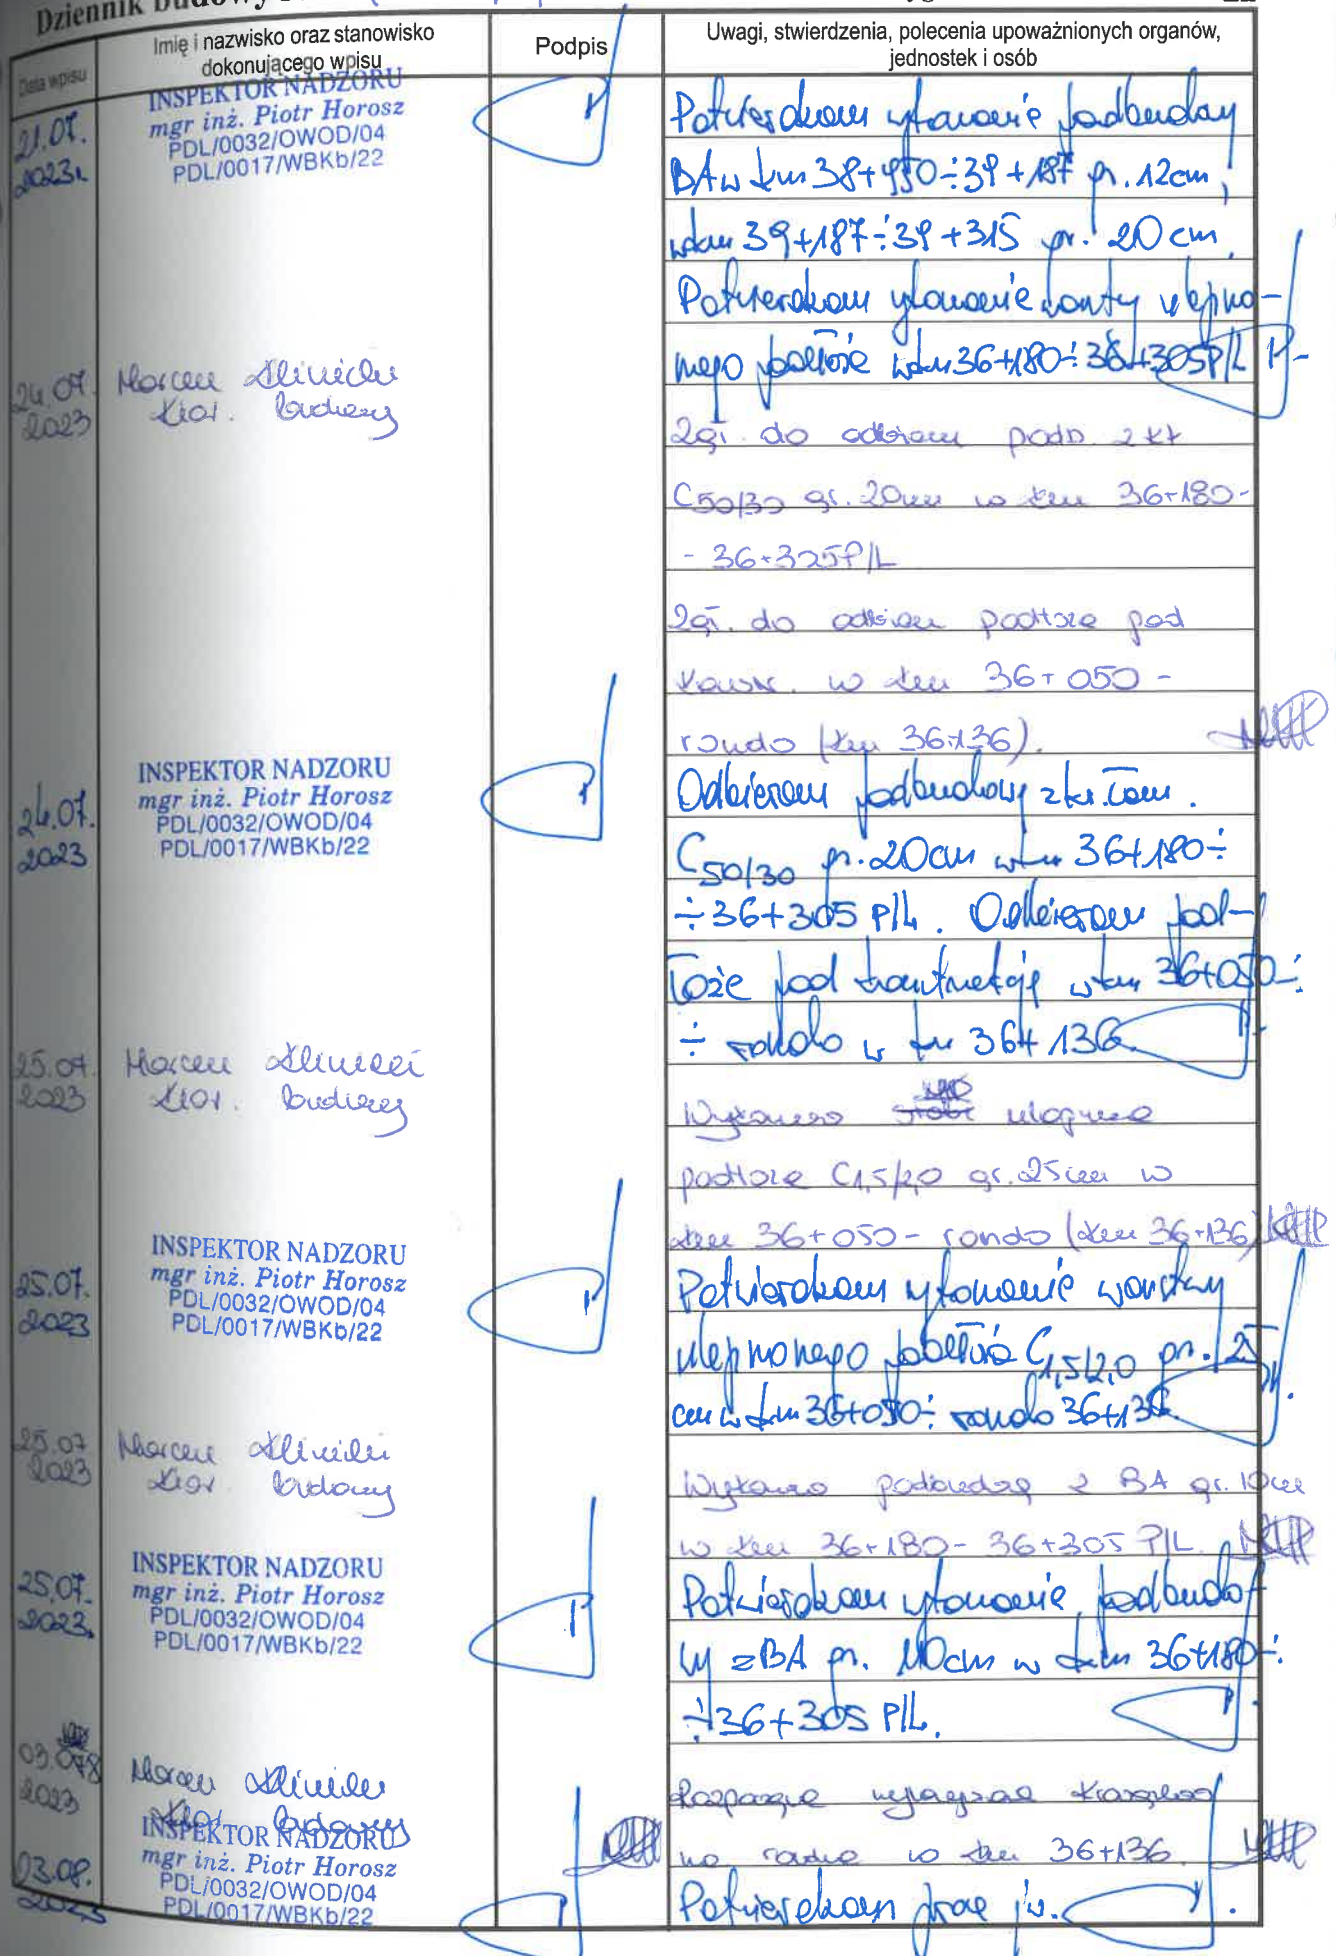 Dziennik Budowy
Data wpisu
Imię i nazwisko oraz stanowisko
dokonującego wpisu
Podpis
Uwagi, stwierdzenia, polecenia upoważnionych organów,
jednostek i osób
21.07.
2023r.
INSPEKTOR NADZORU
mgr inż. Piotr Horosz
PDL/0032/OWOD/04
PDL/0017/WBKb/22
Potwierdzam wykonanie podbudowy
BA w km 38+950÷39+187 gr. 12cm,
w km 39+187÷39+315 gr. 20 cm.
Potwierdzam wykonanie warstwy ulepszo-
nego podłoża w km 36+180÷36+305 P/L
24.07.
2023
Marcin
Kier. budowy
Zgł. do odbioru podb. z kł
C50/30 gr. 20cm w km 36+180-
- 36+325 P/L
Zgł. do odbioru podłoże pod
konstr. w km 36+050 -
rondo (km 36+136).
24.07.
2023
INSPEKTOR NADZORU
mgr inż. Piotr Horosz
PDL/0032/OWOD/04
PDL/0017/WBKb/22
Odbieram podbudowę z kr. łam.
C50/30 gr. 20cm w km 36+180÷
÷36+305 P/L. Odbieram pod-
łoże pod konstrukcję w km 36+050÷
÷ rondo w km 36+136.
25.07.
2023
Marcin
Kier. budowy
Wykonano ulepszone
podłoże C1,5/2,0 gr. 25cm w
km 36+050 - rondo (km 36+136)
25.07.
2023
INSPEKTOR NADZORU
mgr inż. Piotr Horosz
PDL/0032/OWOD/04
PDL/0017/WBKb/22
Potwierdzam wykonanie warstwy
ulepszonego podłoża C1,5/2,0 gr. 25
cm w km 36+050÷ rondo 36+136.
25.07
2023
Marcin
Kier. budowy
Wykonano podbudowę z BA gr. 10cm
w km 36+180 - 36+305 P/L.
25.07.
2023.
INSPEKTOR NADZORU
mgr inż. Piotr Horosz
PDL/0032/OWOD/04
PDL/0017/WBKb/22
Potwierdzam wykonanie podbudo-
wy z BA gr. 10cm w km 36+180÷
÷36+305 P/L.
03.08
2023
Marcin
Kier. budowy
na w km 36+136
03.08.
2023
INSPEKTOR NADZORU
mgr inż. Piotr Horosz
PDL/0032/OWOD/04
PDL/0017/WBKb/22
Potwierdzam prace jw.